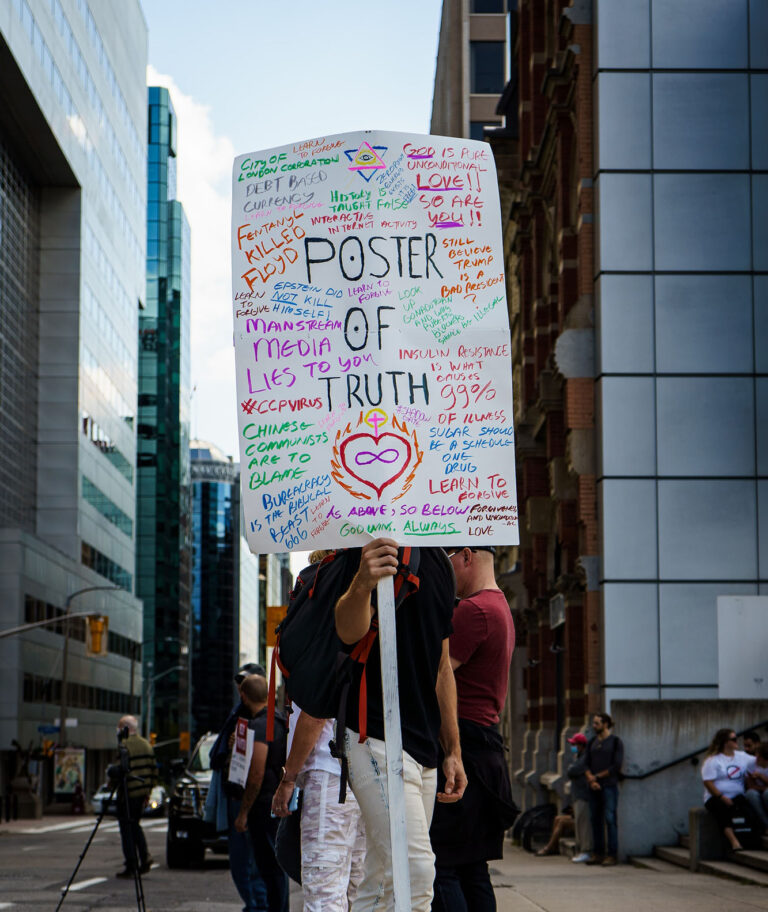 LEARN
TO FORGIVE
CITY OF
LONDON CORPORATION
DEBT BASED
CURRENCY
LEARN TO FORGIVE
HISTORY
TAUGHT FALSE
INTERACTIVE
INTERNET ACTIVITY
GOD IS PURE
UNCONDITIONAL
LOVE!!
SO ARE
YOU!!
FENTANYL
KILLED
FLOYD
POSTER
OF
TRUTH
STILL
BELIEVE
TRUMP
IS A
BAD PRESIDENT
?
LEARN
TO
FORGIVE
EPSTEIN DID
NOT KILL
HIMSELF!
LEARN TO
FORGIVE
LOOK
UP
MAINSTREAM
MEDIA
LIES TO YOU
INSULIN RESISTANCE
IS WHAT
CAUSES
99%
OF ILLNESS
#CCPVIRUS
CHINESE
COMMUNISTS
ARE TO
BLAME
SUGAR SHOULD
BE A SCHEDULE
ONE
DRUG
BUREAUCRACY
IS THE BIBLICAL
BEAST
666
LEARN
TO
FORGIVE
LEARN TO
FORGIVE
AS ABOVE, SO BELOW
GOD WINS. ALWAYS
FORGIVENESS
LOVE